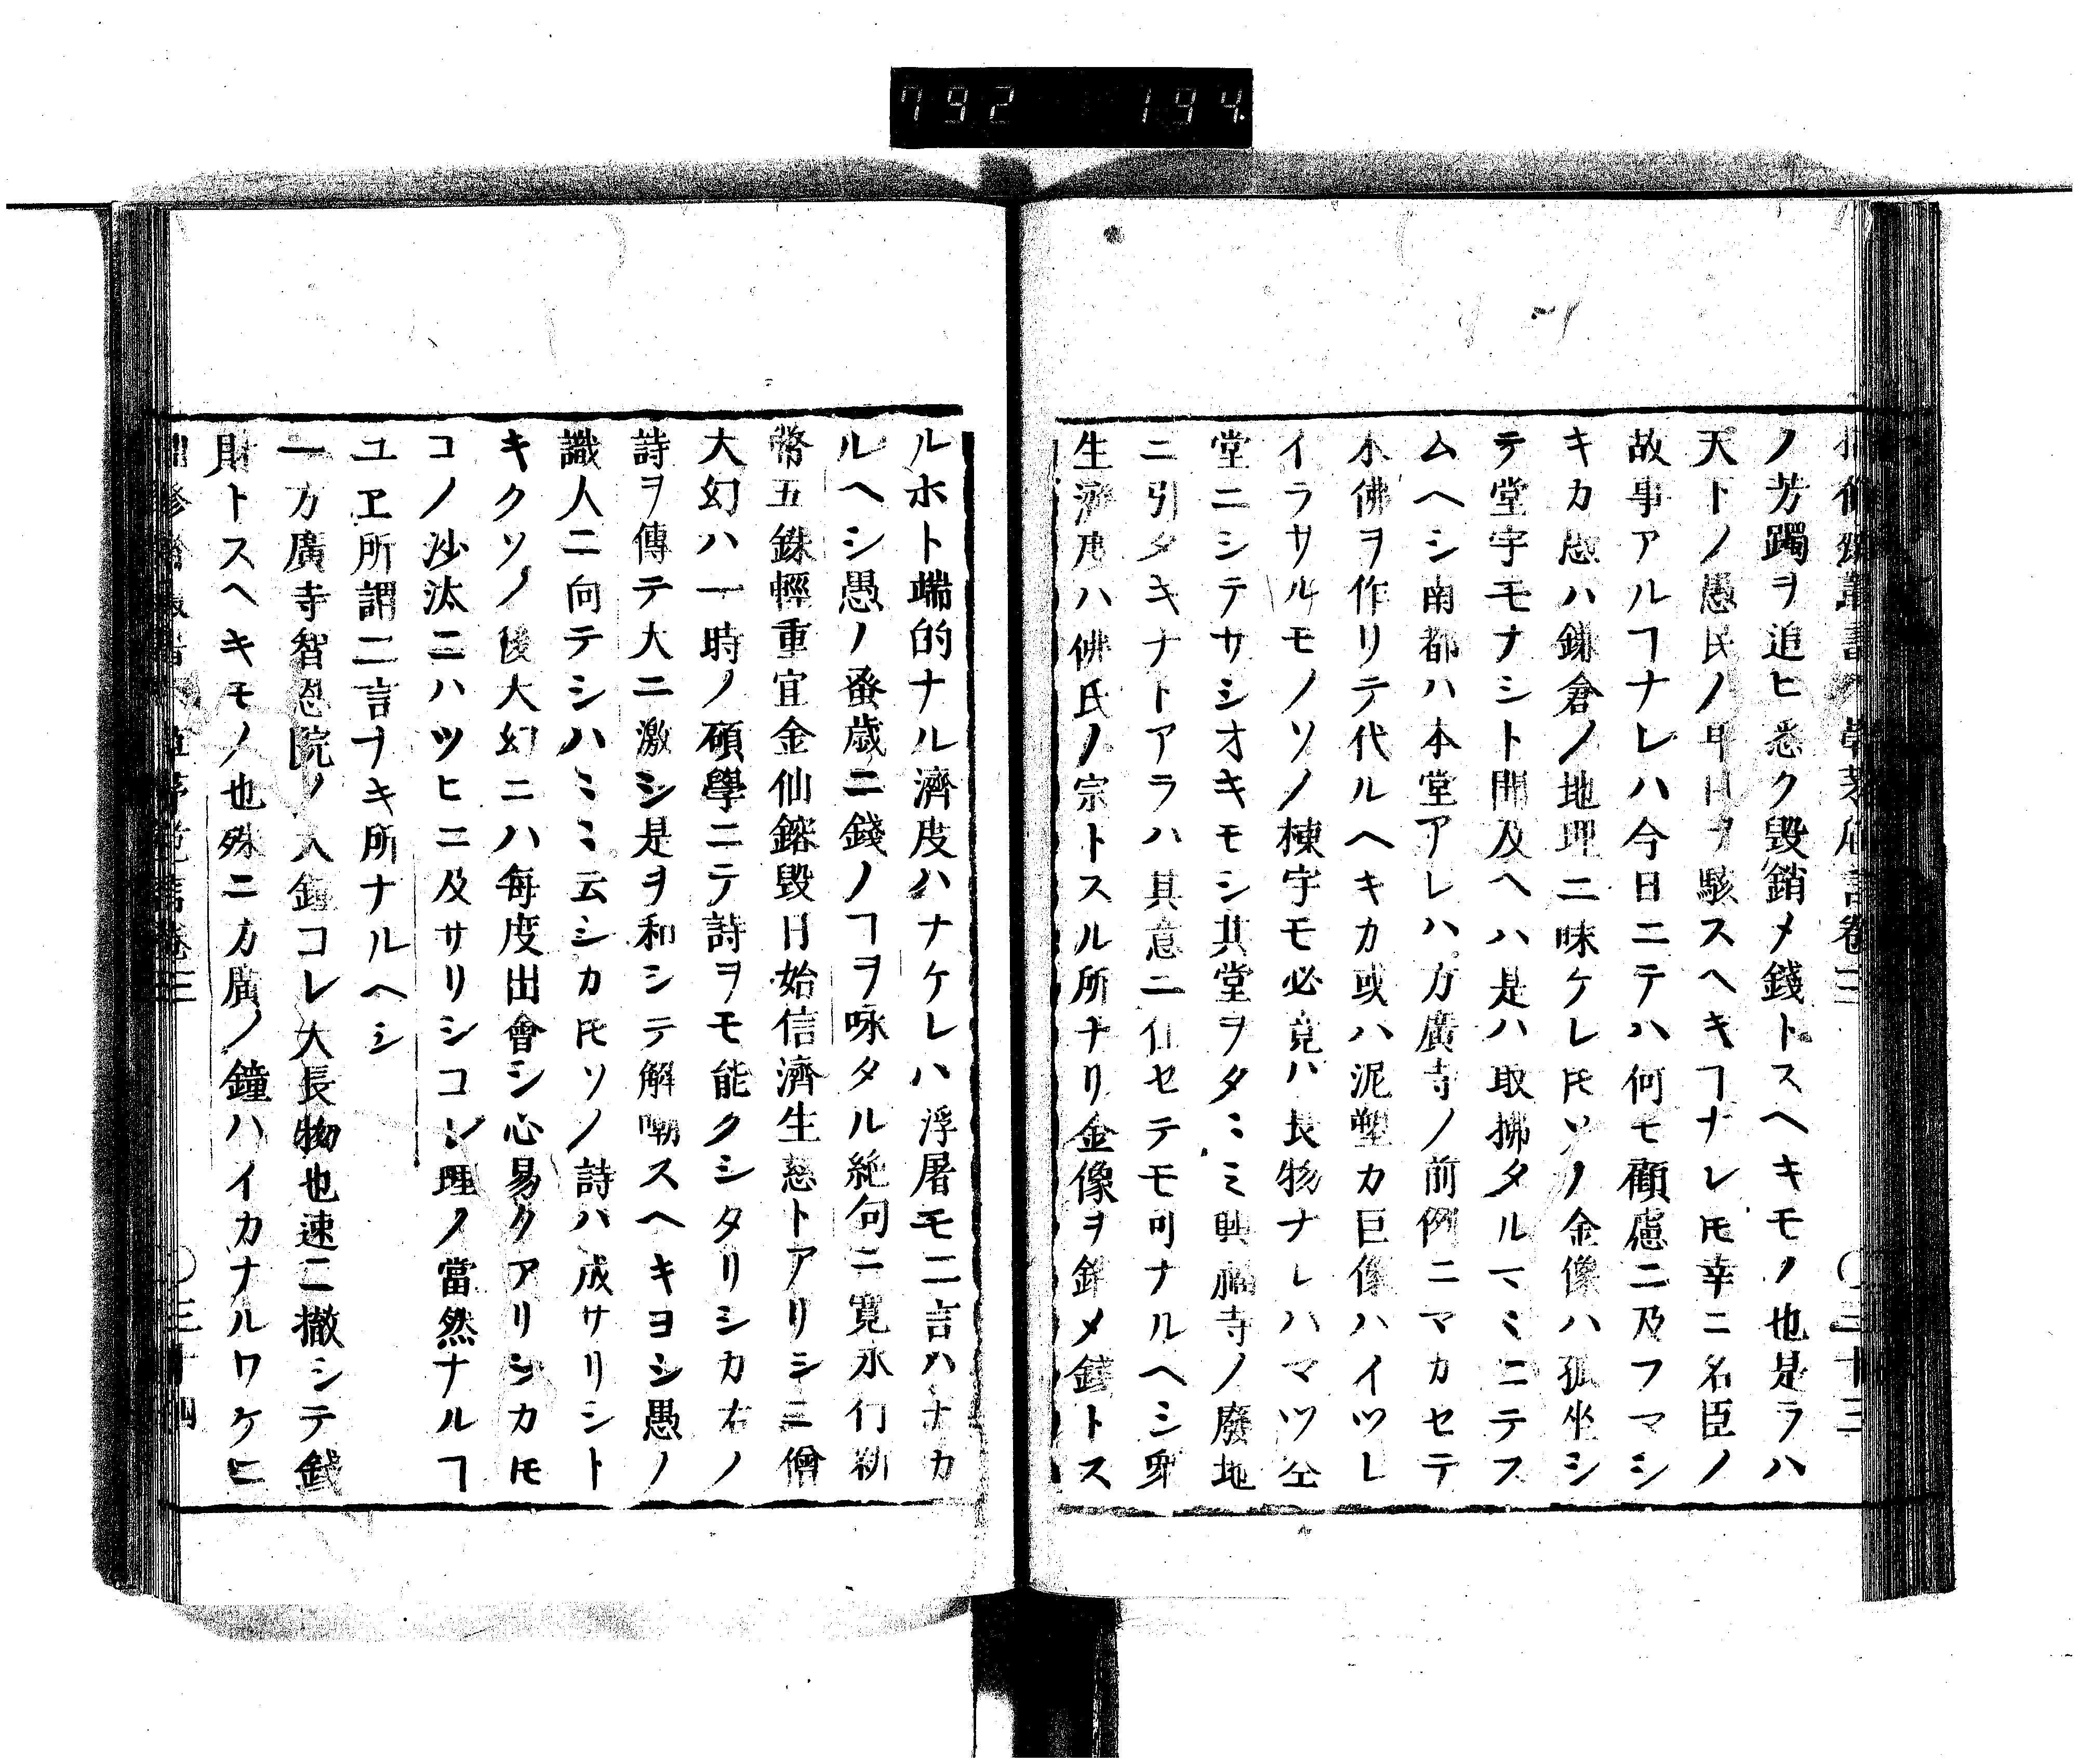 792 194
ノ芳躅ヲ追ヒ悉ク毀銷メ錢トスヘキモノ也是ラハ
天下ノ愚民ノ耳目ヲ駭スヘキヿナレ𪜈幸ニ名臣ノ
故事アルヿナレハ今日ニテハ何モ顧慮ニ及フマシ
キカ愚ハ鎌倉ノ地理ニ昧ケレ𪜈ソノ金像ハ孤坐シ
テ堂宇モナシト聞及ヘハ是ハ取拂タルマヽニテス
ムヘシ南都ハ本堂アレハ方廣寺ノ前例ニマカセテ
木佛ヲ作リテ代ルヘキカ或ハ泥塑カ巨像ハイツレ
イラサルモノソノ棟宇モ必竟ハ長物ナレハマツ空
堂ニシテサシオキモシ其堂ヲタヽミ興福寺ノ廢地
ニ引タキナトアラハ其意ニ任セテモ可ナルヘシ衆
生濟度ハ佛氏ノ宗トスル所ナリ金像ヲ銷メ錢トス
ルホト端的ナル濟度ハナケレハ浮屠モ二言ハナカ
ルヘシ愚ノ蚤歲ニ錢ノヿヲ咏タル絶句ニ寬永行新
幣五銖輕重宜金仙鎔毀日始信濟生慈トアリシニ僧
大幻ハ一時ノ碩學ニテ詩ヲモ能クシタリシカ右ノ
詩ヲ傳テ大ニ激シ是ヲ和シテ解嘲スヘキヨシ愚ノ
識人ニ向テシハミミ云シカ𪜈ソノ詩ハ成サリシト
キクソノ後大幻ニハ每度出會シ心易クアリシカ𪜈
コノ沙汰ニハツヒニ及サリシコレ理ノ當然ナルヿ
ユヱ所謂二言ナキ所ナルヘシ
一方廣寺智恩院ノ大鐘コレ大長物也速ニ撤シテ錢
財トスヘキモノ也殊ニ方廣ノ鐘ハイカナルワケヒ